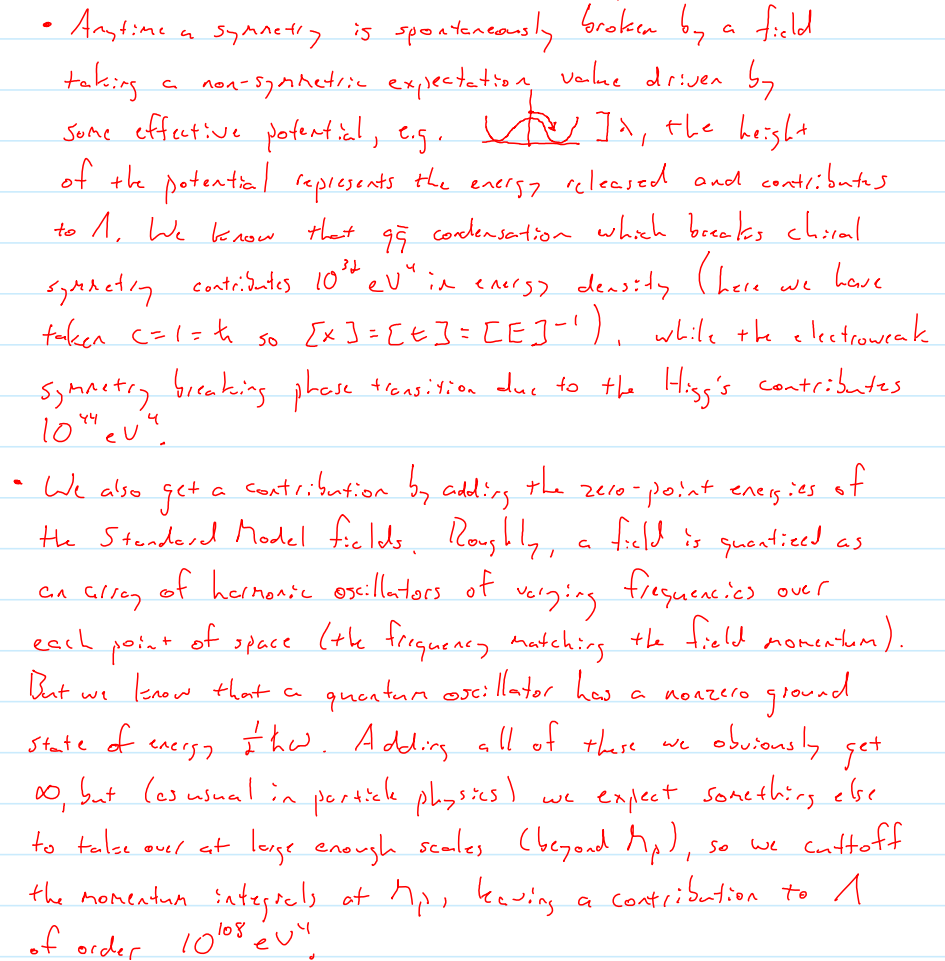 • Anytime a symmetry is spontaneously broken by a field
taking a non-symmetric expectation value driven by
some effective potential, e.g. ]λ, the height
of the potential represents the energy released and contributes
to Λ. We know that qq̄ condensation which breaks chiral
symmetry contributes 10³² eV⁴ in energy density (here we have
taken c=1=ħ so [x]=[t]=[E]⁻¹), while the electroweak
symmetry breaking phase transition due to the Higg's contributes
10⁴⁴ eV⁴.
• We also get a contribution by adding the zero-point energies of
the Standard Model fields. Roughly, a field is quantized as
an array of harmonic oscillators of varying frequencies over
each point of space (the frequency matching the field momentum).
But we know that a quantum oscillator has a nonzero ground
state of energy ½ħω. Adding all of these we obviously get
∞, but (as usual in particle physics) we expect something else
to take over at large enough scales (beyond Mₚ), so we cuttoff
the momentum integrals at Mₚ, leaving a contribution to Λ
of order 10¹⁰⁸ eV⁴.